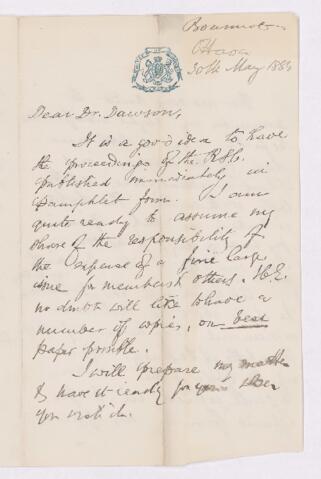 Ottawa
30th May 1884
Dear Dr. Dawson,
It is a good idea to have
the proceedings of the R.S.C.
published immediately in
pamphlet form. I am
quite ready to assume my
share of the responsibility of
the expense of a fine large
issue for members & others. H.E.
no doubt will like to have a
number of copies, on best
paper possible.
I will prepare my matter
& have it ready for you when
you wish it.